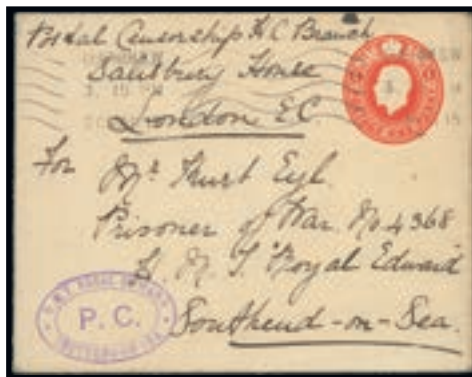 Postal Censorship H.C Branch
Salisbury House
London EC
3. 15 PM
For Mr Kurt Eyl
Prisoner of War No 4368
H. M. T. "Royal Edward
Southend-on-Sea.
P. C.